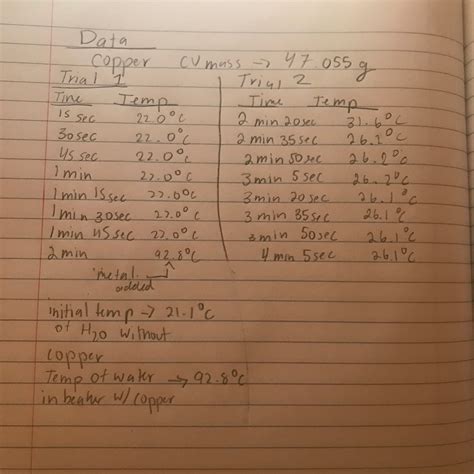 Data
Copper CV mass → 47.055g
Trial 1
Time Temp
15 sec 22.0°C
30sec 22.0°C
45 sec 22.0°C
1 min 22.0°C
1 min 15sec 22.0°C
1 min 30sec 22.0°C
1 min 45sec 22.0°C
2 min 92.8°C
metal added
Trial 2
Time Temp
2 min 20sec 31.6°C
2 min 35sec 26.2°C
2 min 50sec 26.2°C
3 min 5sec 26.2°C
3 min 20sec 26.1°C
3 min 35sec 26.1°C
3min 50sec 26.1°C
4 min 5sec 26.1°C
initial temp → 21.1°C
of H2O without
copper
Temp of water → 92.8°C
in beaker w/ copper